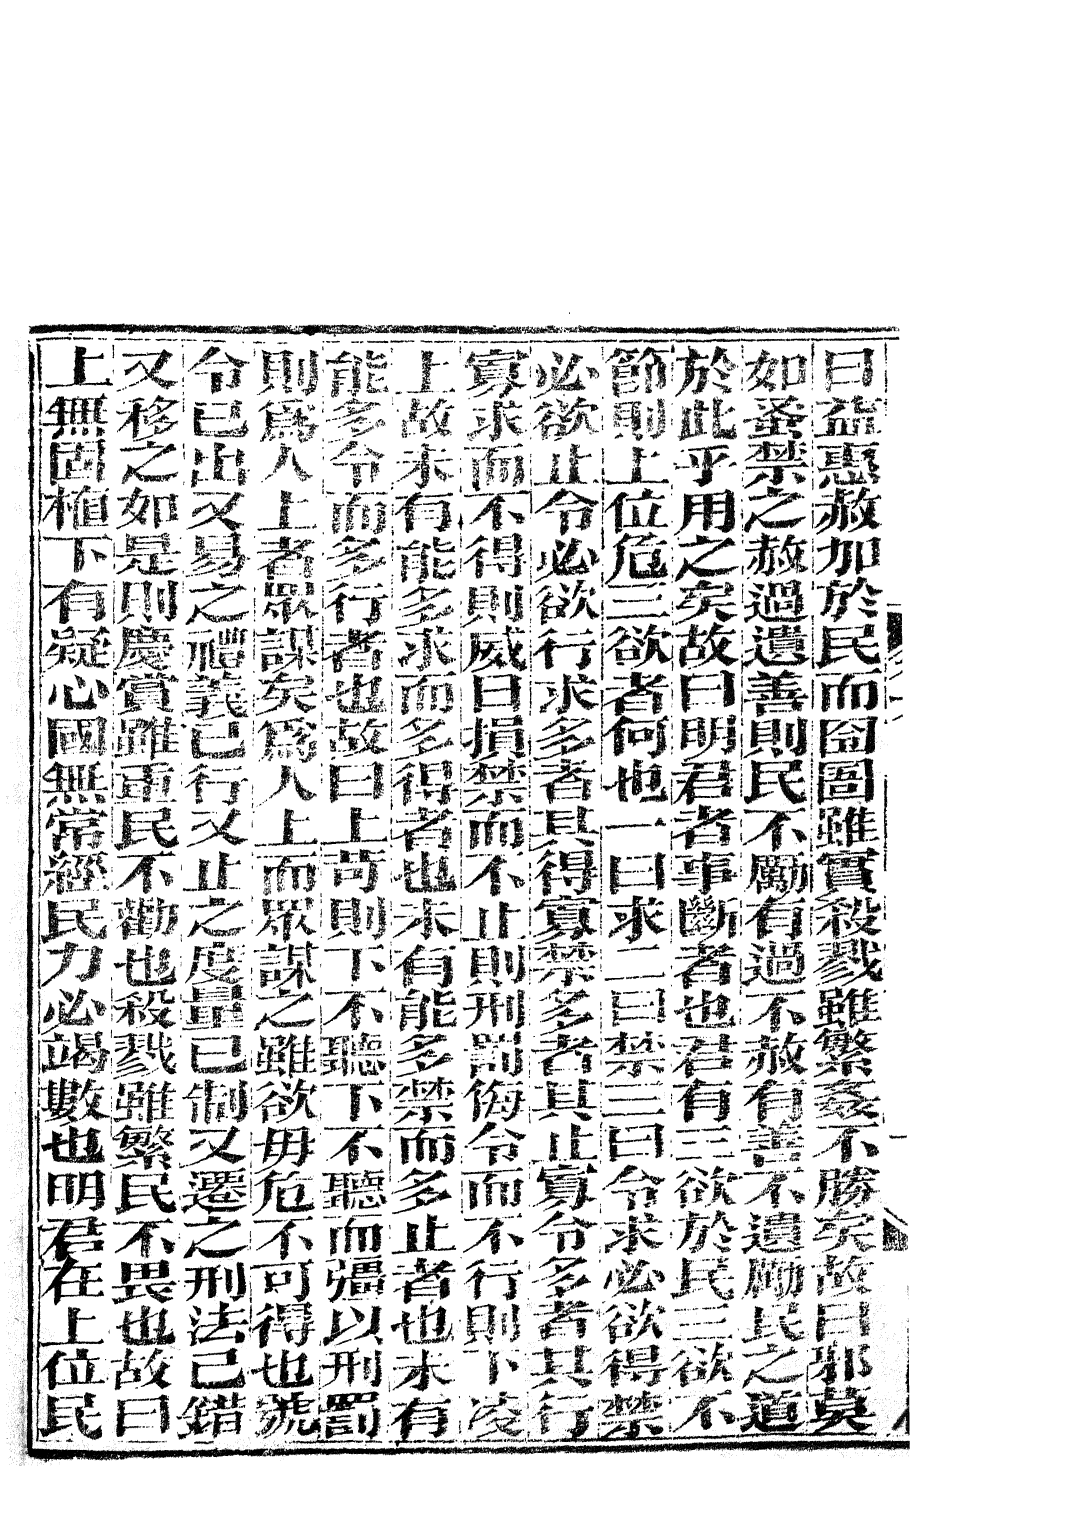 曰益惠赦加於民而囹圄雖實殺戮雖繁姦不勝矣故曰邪莫
如蚤禁之赦過遺善則民不勵有過不赦有善不遺勵民之道
於此乎用之矣故曰明君者事斷者也君有三欲於民三欲不
節則上位危三欲者何也一曰求二曰禁三曰令求必欲得禁
必欲止令必欲行求多者其得寡禁多者其止寡令多者其行
寡求而不得則威曰損禁而不止則刑罰侮令而不行則下凌
上故未有能多求而多得者也未有能多禁而多止者也未有
能多令而多行者也故曰上苛則下不聽下不聽而彊以刑罰
則爲人上者眾謀矣爲人上而眾謀之雖欲毋危不可得也號
令已出又易之禮義已行又止之度量已制又遷之刑法已錯
又移之如是則慶賞雖重民不勸也殺戮雖繁民不畏也故曰
上無固植下有疑心國無常經民力必竭數也明君在上位民